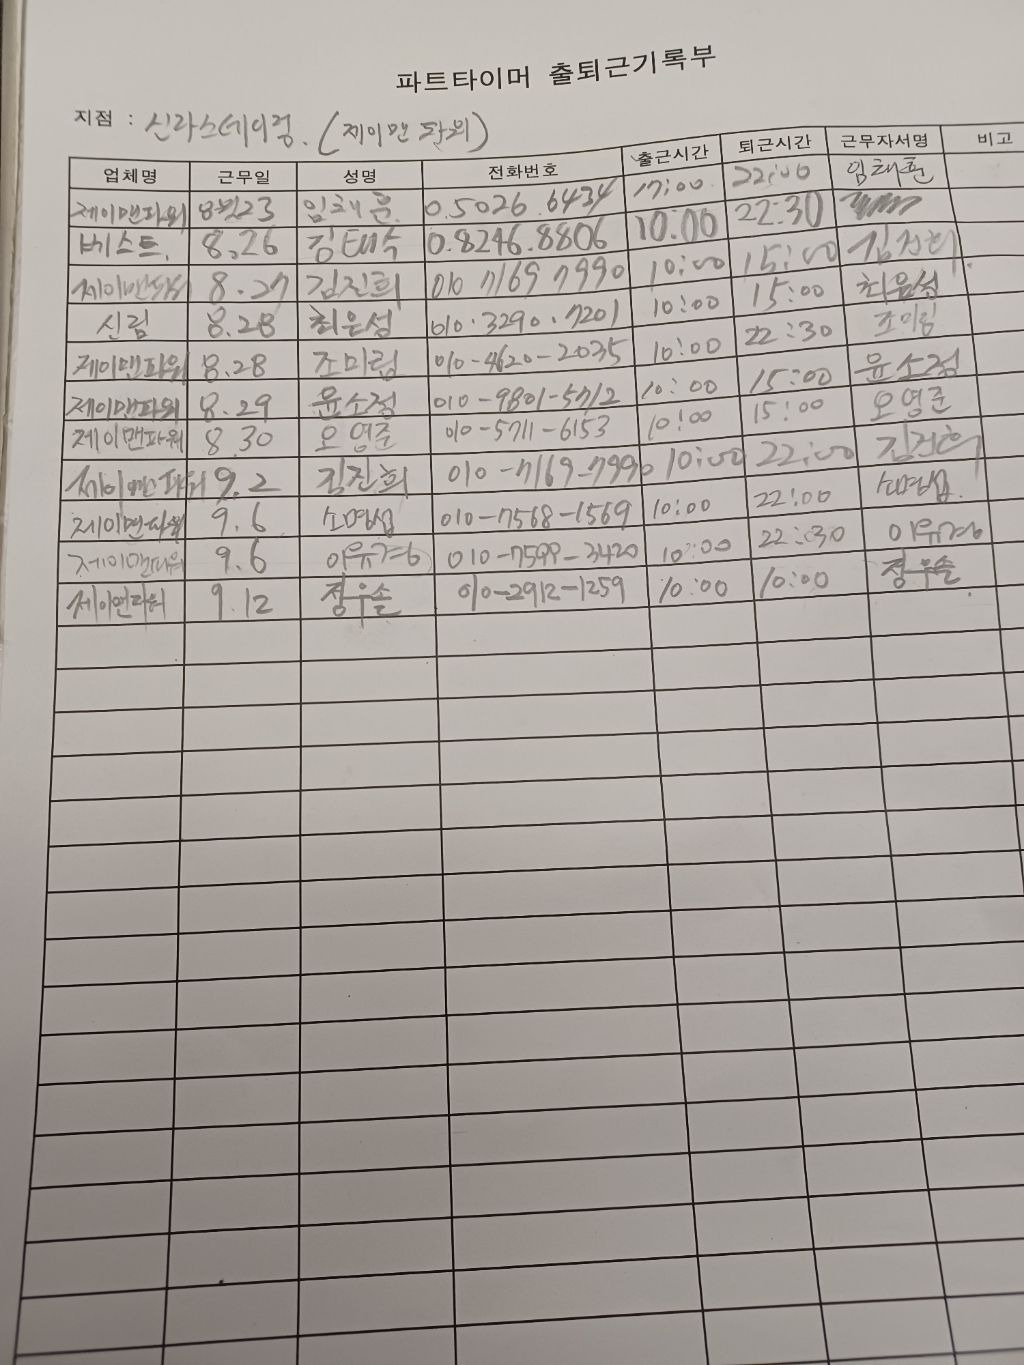 파트타이머 출퇴근기록부
지점 : 신라스테이점. (제이맨파워)
업체명 근무일 성명 전화번호 출근시간 퇴근시간 근무자서명 비고
제이맨파워 8월23 임채훈. 0.5026.6434 17:00 22:00 임채훈
베스트. 8.26 김태숙 0.8246.8806 10:00 22:30
제이맨파워 8.27 김진희 010 7169 7990 10:00 15:00 김진희
신림 8.28 최은성 010.3290.7201 10:00 15:00 최은성
제이맨파워 8.28 조미림 010-4620-2035 10:00 22:30 조미림
제이맨파워 8.29 윤소정 010-9801-5712 10:00 15:00 윤소정
제이맨파워 8.30 오영준 010-5711-6153 10:00 15:00 오영준
제이맨파워 9.2 김진희 010-7169-7990 10:00 22:00 김진희
제이맨파워 9.6 소명섭 010-7568-1569 10:00 22:00 소명섭
제이맨파워 9.6 이유경 010-7599-3420 10:00 22:30 이유경
제이맨파워 9.12 정우솔 010-2912-1259 10:00 10:00 정우솔